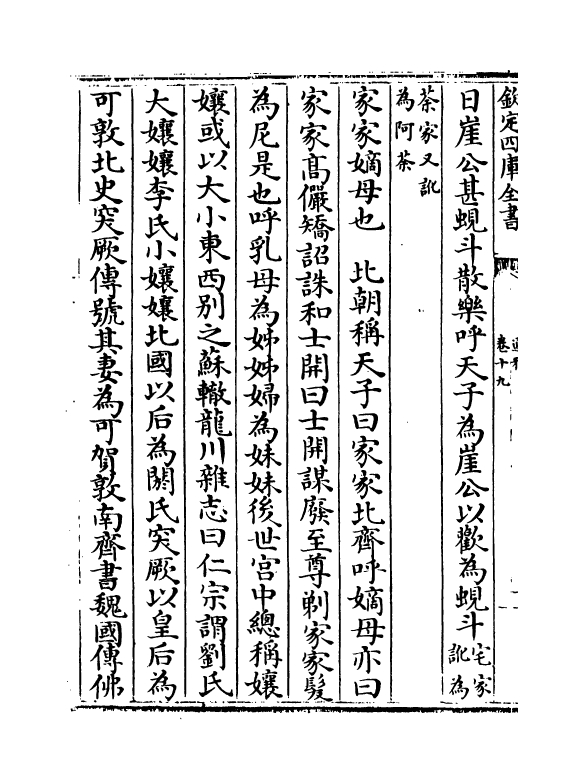 欽定四庫全書
卷十九
日崖公甚蜆斗散樂呼天子為崖公以歡為蜆斗宅家訛為
茶家又訛
為阿茶
家家嫡母也　北朝稱天子曰家家北齊呼嫡母亦曰
家家髙儼矯詔誅和士開曰士開謀廢至尊剃家家髮
為尼是也呼乳母為姊姊婦為妹妹後世宫中總稱孃
孃或以大小東西别之蘇轍龍川雜志曰仁宗謂劉氏
大孃孃李氏小孃孃北國以后為閼氏突厥以皇后為
可敦北史突厥傳號其妻為可賀敦南齊書魏國傳佛